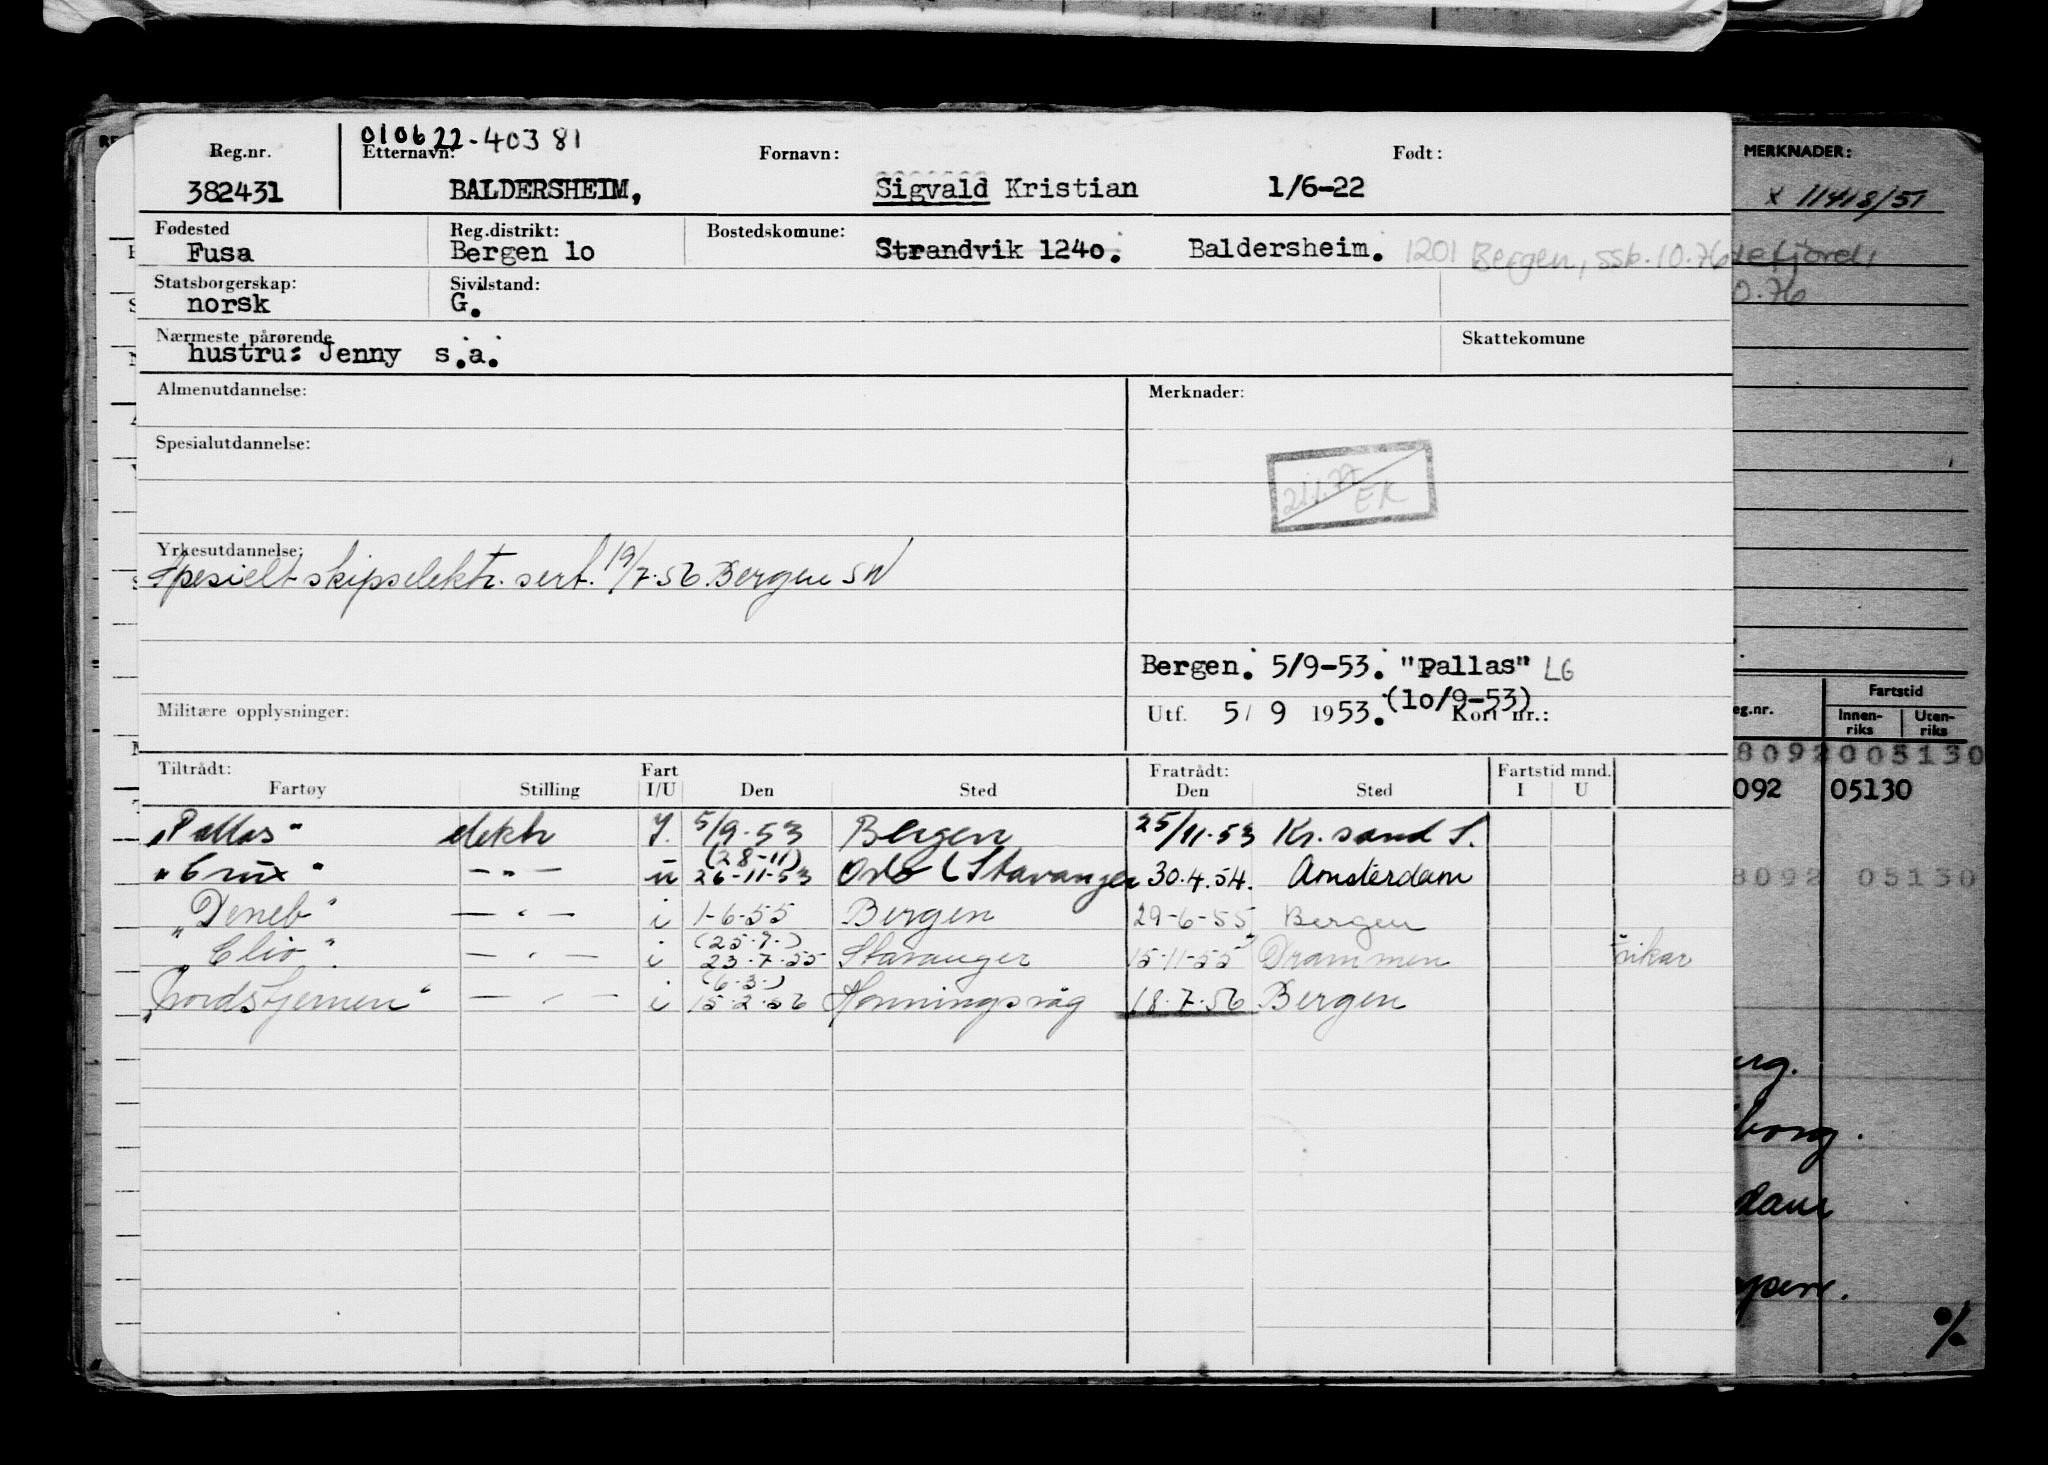 010622-40381
Reg.nr. Etternavn: Fornavn: Født:
382431 BALDERSHEIM, Sigvald Kristian 1/6-22
Fødested Reg.distrikt: Bostedskomune:
Fusa Bergen 10 Strandvik 1240. Baldersheim. 1201 Bergen, ssb. 10.76
Statsborgerskap: Sivilstand:
norsk G.
Nærmeste pårørende Skattekomune
hustru: Jenny s.a.
Almenutdannelse: Merknader:
Spesialutdannelse:
21.1.77 EK
Yrkesutdannelse:
Spesielt skipselektr. sert. 19/7.56. Bergen SW
Bergen. 5/9-53. "Pallas" LG
(10/9-53)
Militære opplysninger: Utf. 5/9 1953. Kort nr.:
Tiltrådt: Fart Fratrådt: Fartstid mnd.
Fartøy Stilling I/U Den Sted Den Sted I U
"Pallas" elektr I. 5/9-53 Bergen 25/11-53 Kr. sand S.
(28-11)
"Crux" -"- u 26-11-53 Oslo (Stavanger 30.4.54. Amsterdam
"Deneb" -"- i 1-6-55 Bergen 29-6-55 Bergen
(25.7.)
"Clio" -"- i 23.7.55 Stavanger 15-11-55 Drammen vikar
(6.3.)
"Nordstjernen" -"- i 15.2.56 Honningsvåg 18.7.56 Bergen
MERKNADER:
x 11418/51
efjord,
0.76
eg.nr. Fartstid
Innen-riks Uten-riks
8092005130
092 05130
8092 05130
urg.
borg.
dam
%